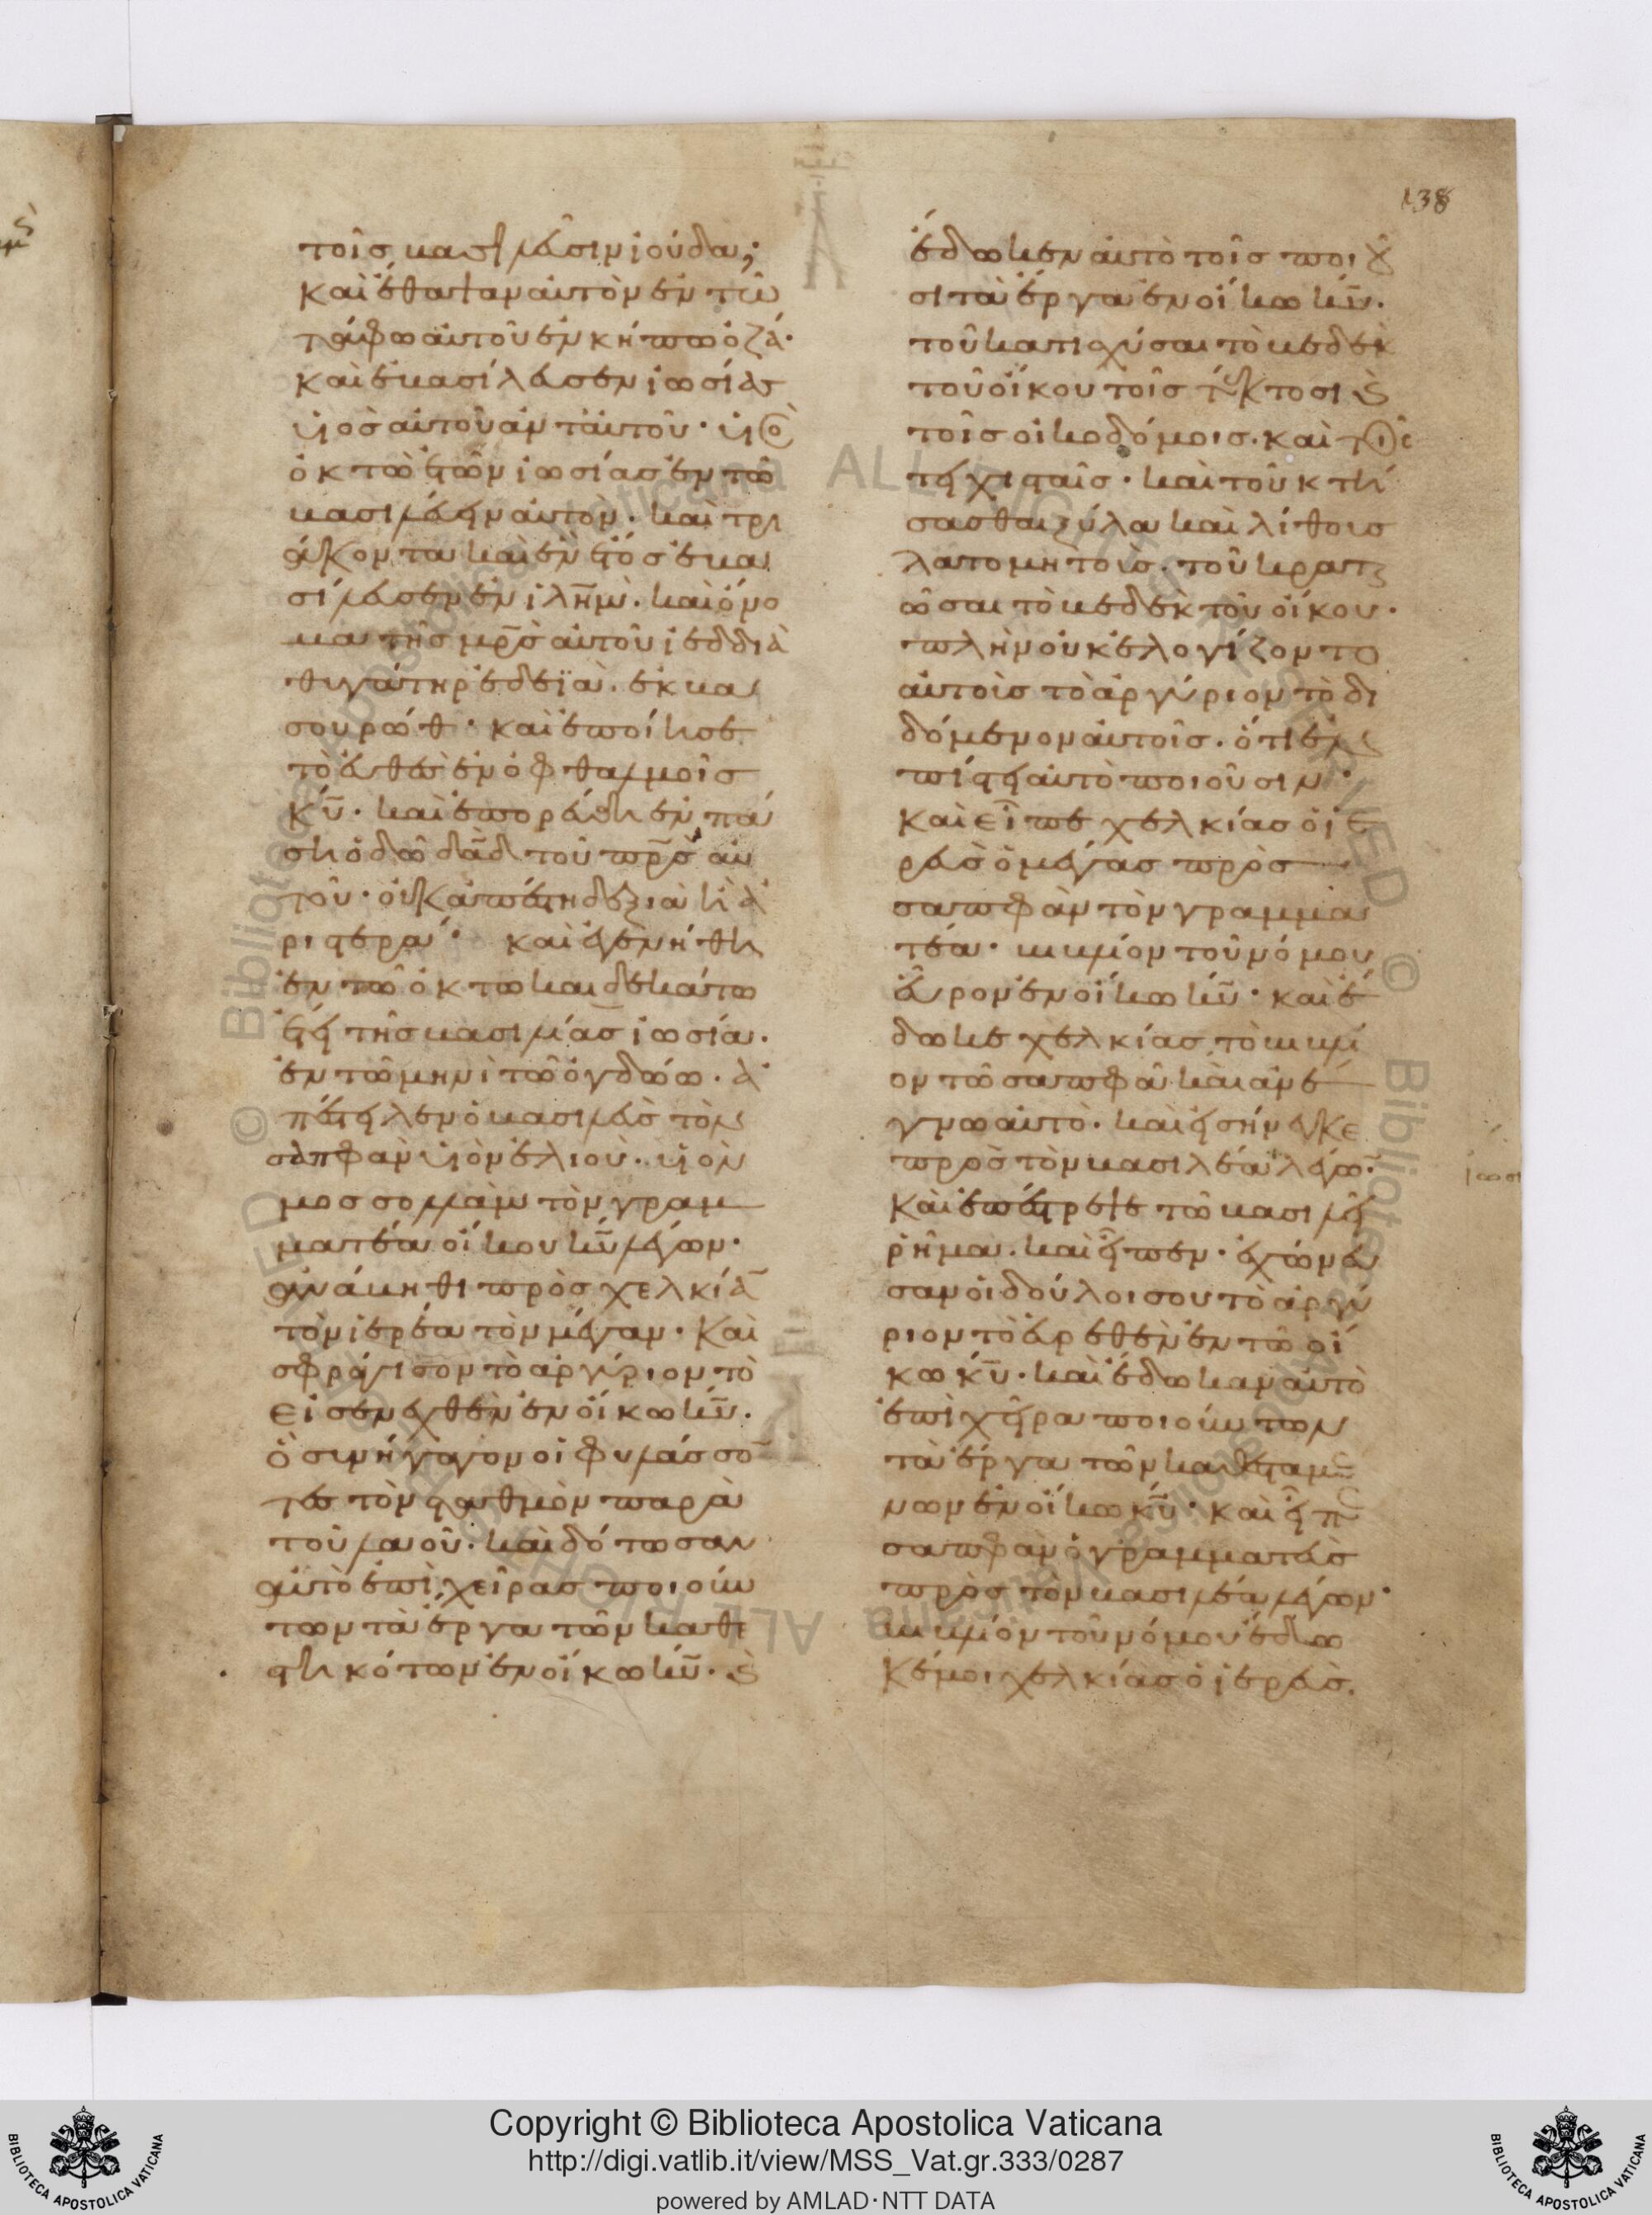 138
τοῖς βασιλεῦσιν ἰούδα·
καὶ ἔθαψαν αὐτὸν ἐν τῶ
τάφω αὐτοῦ ἐν κήπω ὀζά·
καὶ ἐβασίλευσεν ἰωσίας
υἱὸσ αὐτοῦ ἀντ᾽αὐτοῦ· υἱὸσ
ὀκτὼ ἐτῶν ἰωσίασ ἐν τῶ
βασιλεύειν αὐτὸν· καὶ τρι
άκοντα καὶ ἓν ἔτοσ ἐβα
σίλευσεν ἐν ἰλῆμ̅· καὶ ὄνο
μα τῆσ μρ̅σ αὐτοῦ ἰεδδιὰ
θυγάτηρ ἐδεϊὰ· ἐκ βα
σουρώθ· καὶ ἐποίησε
τὸ εὐθὲσ ἐν ὀφθαλμοῖσ
κ̅υ· καὶ ἐπορεύθη ἐν πά
σῃ ὁδῶ δα̅δ τοῦ πρ̅σ αὐ
τοῦ· οὐκ ἀπέστη δεξιὰ ἢ ἀ
ριστερά· καὶ ἐγενήθη
ἐν τῶ ὀκτωκαιδεκάτω
ἔτει τῆσ βασιλείασ ἰωσία·
ἐν τῶ μηνὶ τῶ ὀγδόω· ἀ
πέστειλεν ὁ βασιλεὺσ τὸν
σαπφὰν υἱὸν ἐλιοὺ· υἱὸν
μεσσολλὰμ τὸν γραμ
ματέα οἴκου κ̅υ λέγων·
ἀνάβηθι πρὸσ χελκία̅
τὸν ἱερέα τὸν μέγαν· καὶ
σφράγισον τὸ ἀργύριον τὸ
εἰσενεχθὲν ἐν οἴκω κ̅υ·
ὃ συνήγαγον οἱ φυλάσσο̅
τεσ τὸν σταθμὸν παρὰ
τοῦ λαοῦ· καὶ δότωσαν
αὐτὸ ἐπὶ χεῖρασ ποιούν
των τὰ ἔργα τῶν καθε
στηκότων ἐν οἴκω κ̅υ· καὶ
ἔδωκεν αὐτὸ τοῖσ ποιοῦ
σι τὰ ἔργα ἐν οἴκω κ̅υ·
τοῦ κατισχύσαι τὸ βεδὲκ
τοῦ οἴκου τοῖσ τέκτοσι καὶ
τοῖσ οἰκοδόμοισ· καὶ τοῖσ
τειχισταῖσ· καὶ τοῦ κτή
σασθαι ξύλα καὶ λίθουσ
λατομητοὺσ· τοῦ κρατ
ῶσαι τὸ βεδὲκ τοῦ οἴκου·
πλὴν οὐκ ἐλογίζοντο
αὐτοῖσ τὸ ἀργύριον τὸ δι
δόμενον αὐτοῖσ· ὅτι ἐν
πίστει αὐτὸ ποιοῦσιν·
καὶ εἶπε χελκίασ ὁ ἱε
ρεὺσ ὁ μέγασ πρὸσ
σαπφὰν τὸν γραμμα
τέα· βιβλίον τοῦ νόμου
εὗρον ἐν οἴκω κ̅υ· καὶ ἔ
δωκε χελκίασ τὸ βιβλί
ον τῶ σαπφὰν καὶ ἀνέ
γνω αὐτὸ· καὶ εἰσήνεγκε
πρὸσ τὸν βασιλέα λέγω̅·
καὶ ἐπέστρεψε τῶ βασιλεῖ
ῥῆμα· καὶ εἶπεν· ἐχώνευ
σαν οἱ δοῦλοι σου τὸ ἀργύ
ριον τὸ εὑρεθὲν ἐν τῶ οἴ
κω κ̅υ· καὶ ἔδωκαν αὐτὸ
ἐπὶ χεῖρα ποιούντων
τὰ ἔργα τῶν καθεσταμέ
νων ἐν οἴκω κ̅υ· καὶ εἶπε
σαπφὰν ὁ γραμματεὺσ
πρὸσ τὸν βασιλέα λέγων·
βιβλίον τοῦ νόμου ἔδω
κέ μοι χελκίασ ὁ ἱερεύσ.
Copyright © Biblioteca Apostolica Vaticana
http://digi.vatlib.it/view/MSS_Vat.gr.333/0287
powered by AMLAD·NTT DATA
BIBLIOTECA APOSTOLICA VATICANA
BIBLIOTECA APOSTOLICA VATICANA